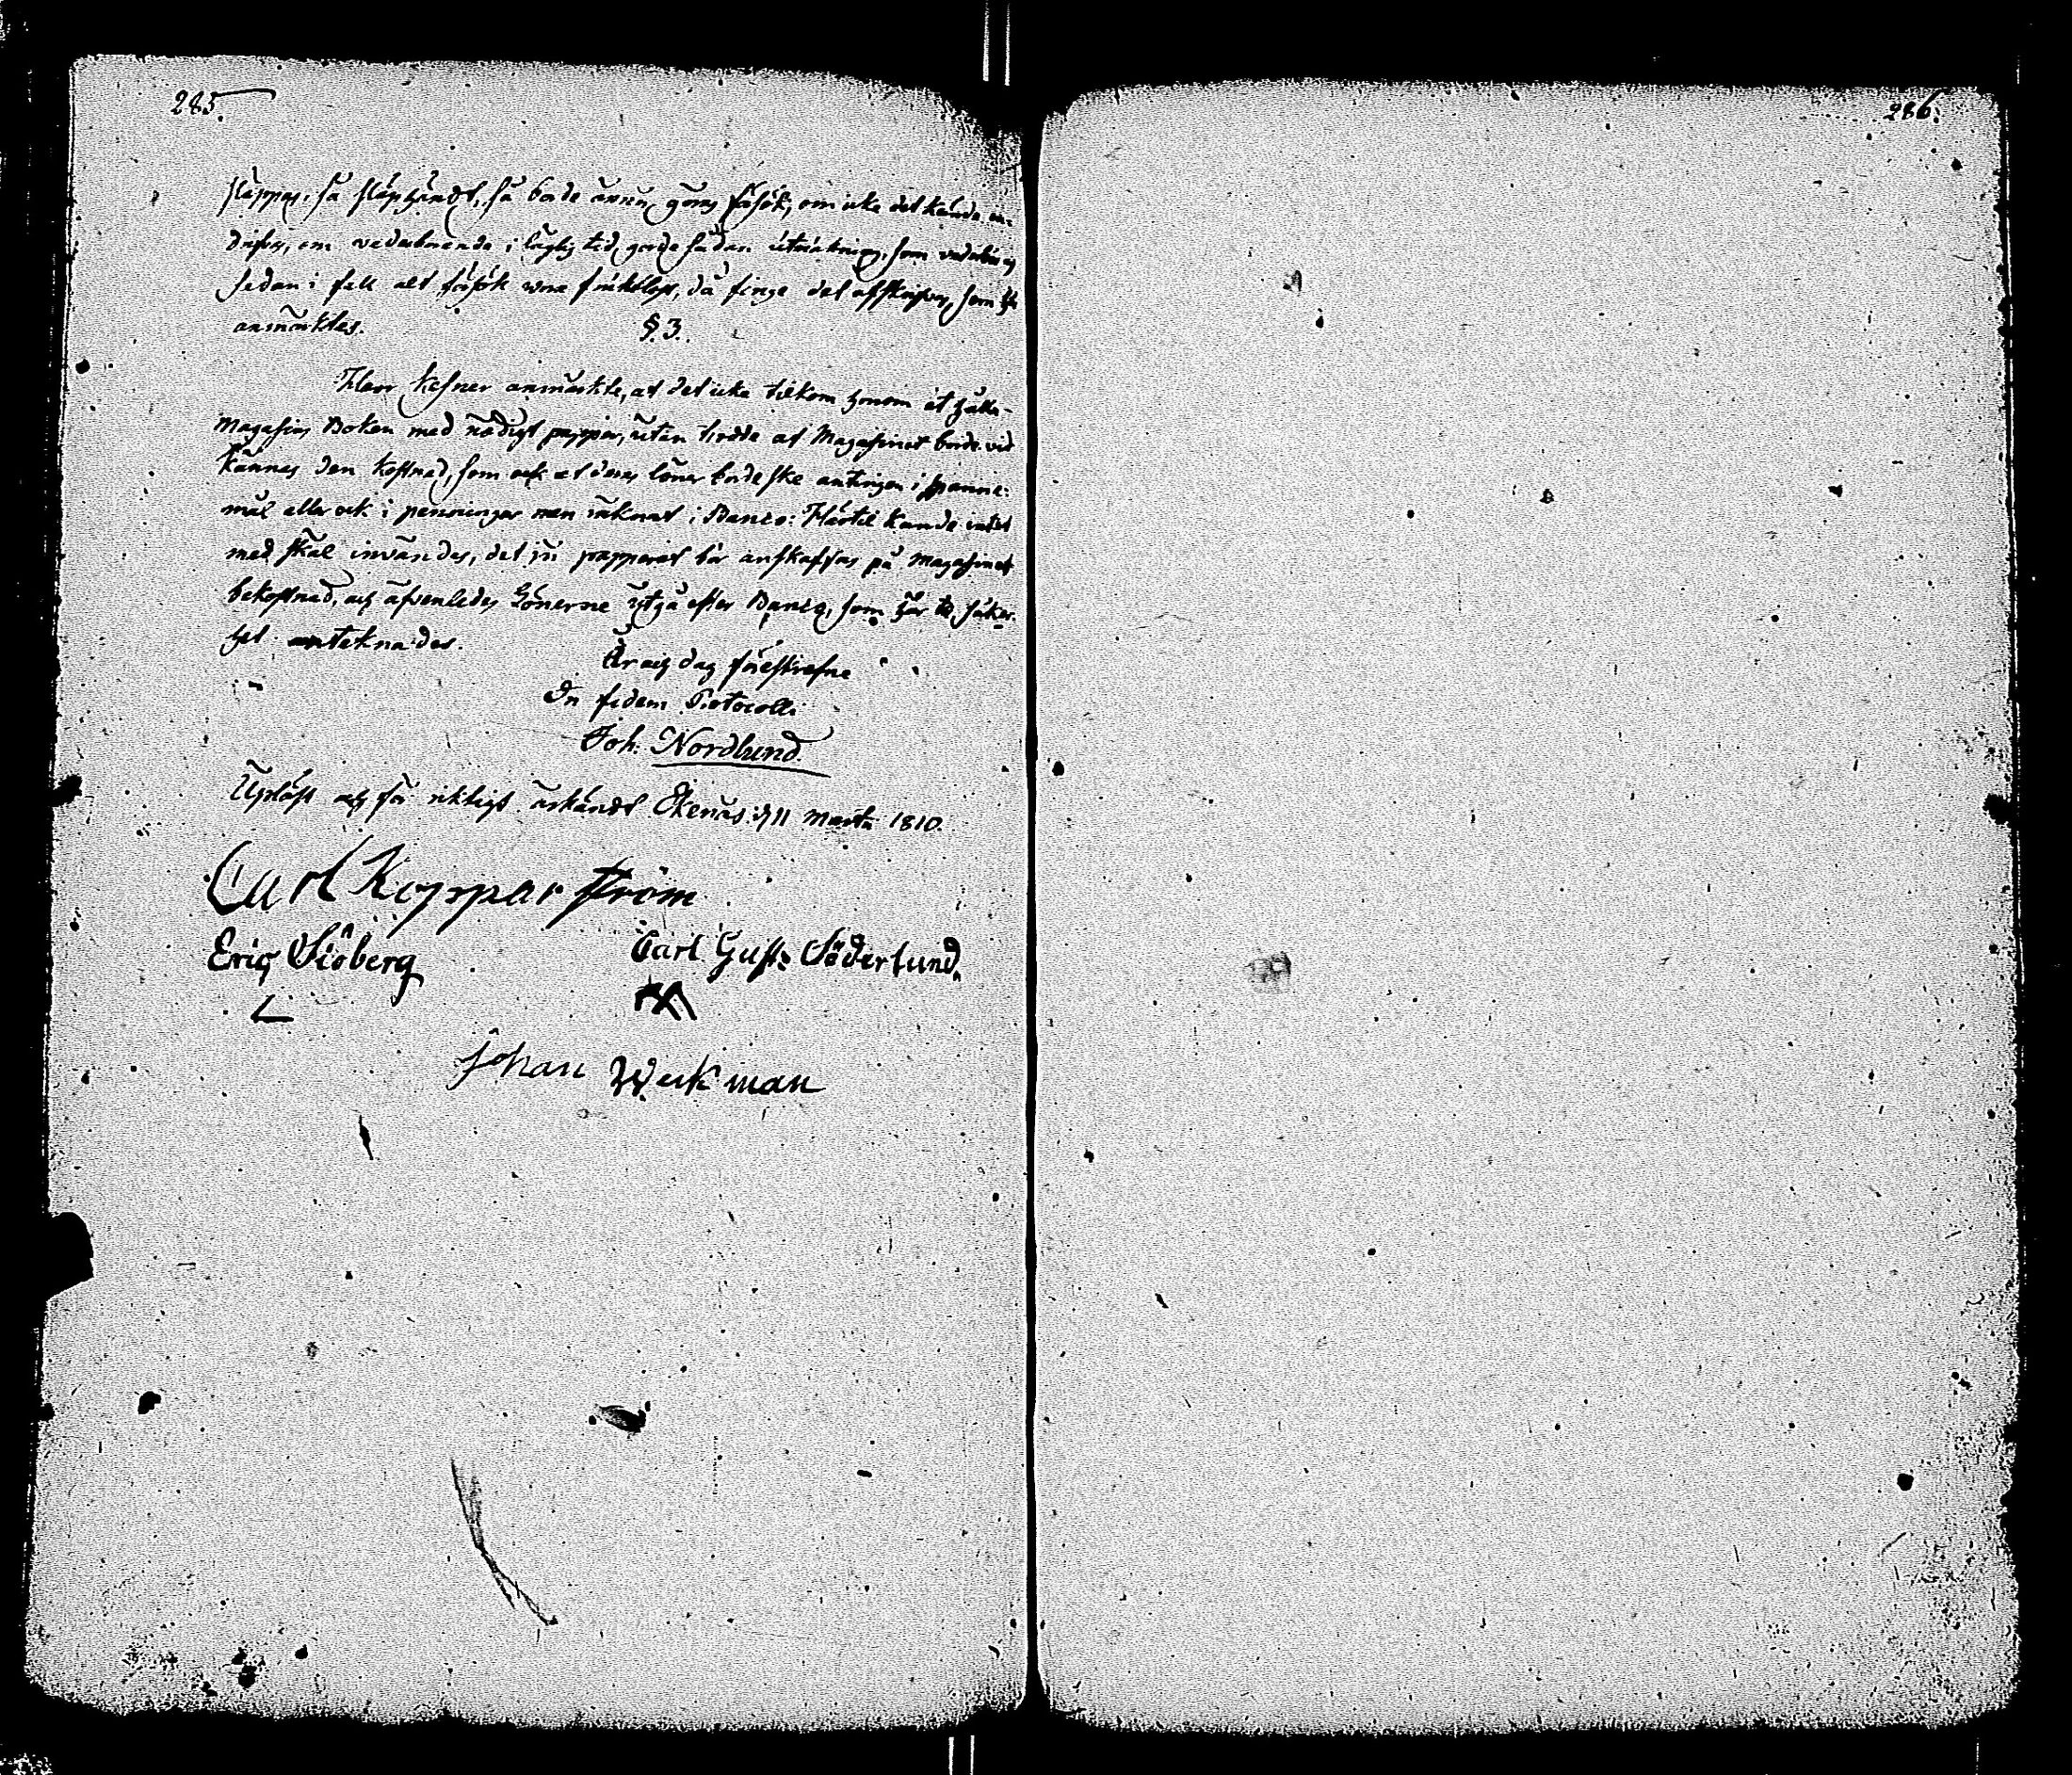 285.
släppas, så skäphändt, så borde äfven göras försök, om icke det kunde in-
drifvas, om vederbörande i laglig tid, gorde sådan uträkning, som vederbör, och
sedan i fall alt försök wore fruktlöst, då finge det afskrifvas, som
anmärktes. §. 3.
Herr Kesner anmärkte, at det icke tilkom honom at hålla
Magasins Boken med nödigt papper, utan trodde at Magasinet borde vid
kännas den kostnad, som ock at deras löner borde ske antingen i spanne-
mål eller ock i penningar men räknat i Banco: Härtil kunde intet
med skäl invändas, det ju papperet bör anskaffas på Magasinet
bekostnad, och äfvenledes Lönerne utgå efter Banco, som här til säker-
het anteknades.
År och dag föreskrefne
In fidem Protocolli
Joh: Nordlund.
Upläst och för riktigt erkändt Ekenäs d 11 Martii 1810.
Carl Kopparström
Eric Siöberg Carl Gust: Söderlund.
Johan Weckman
286.